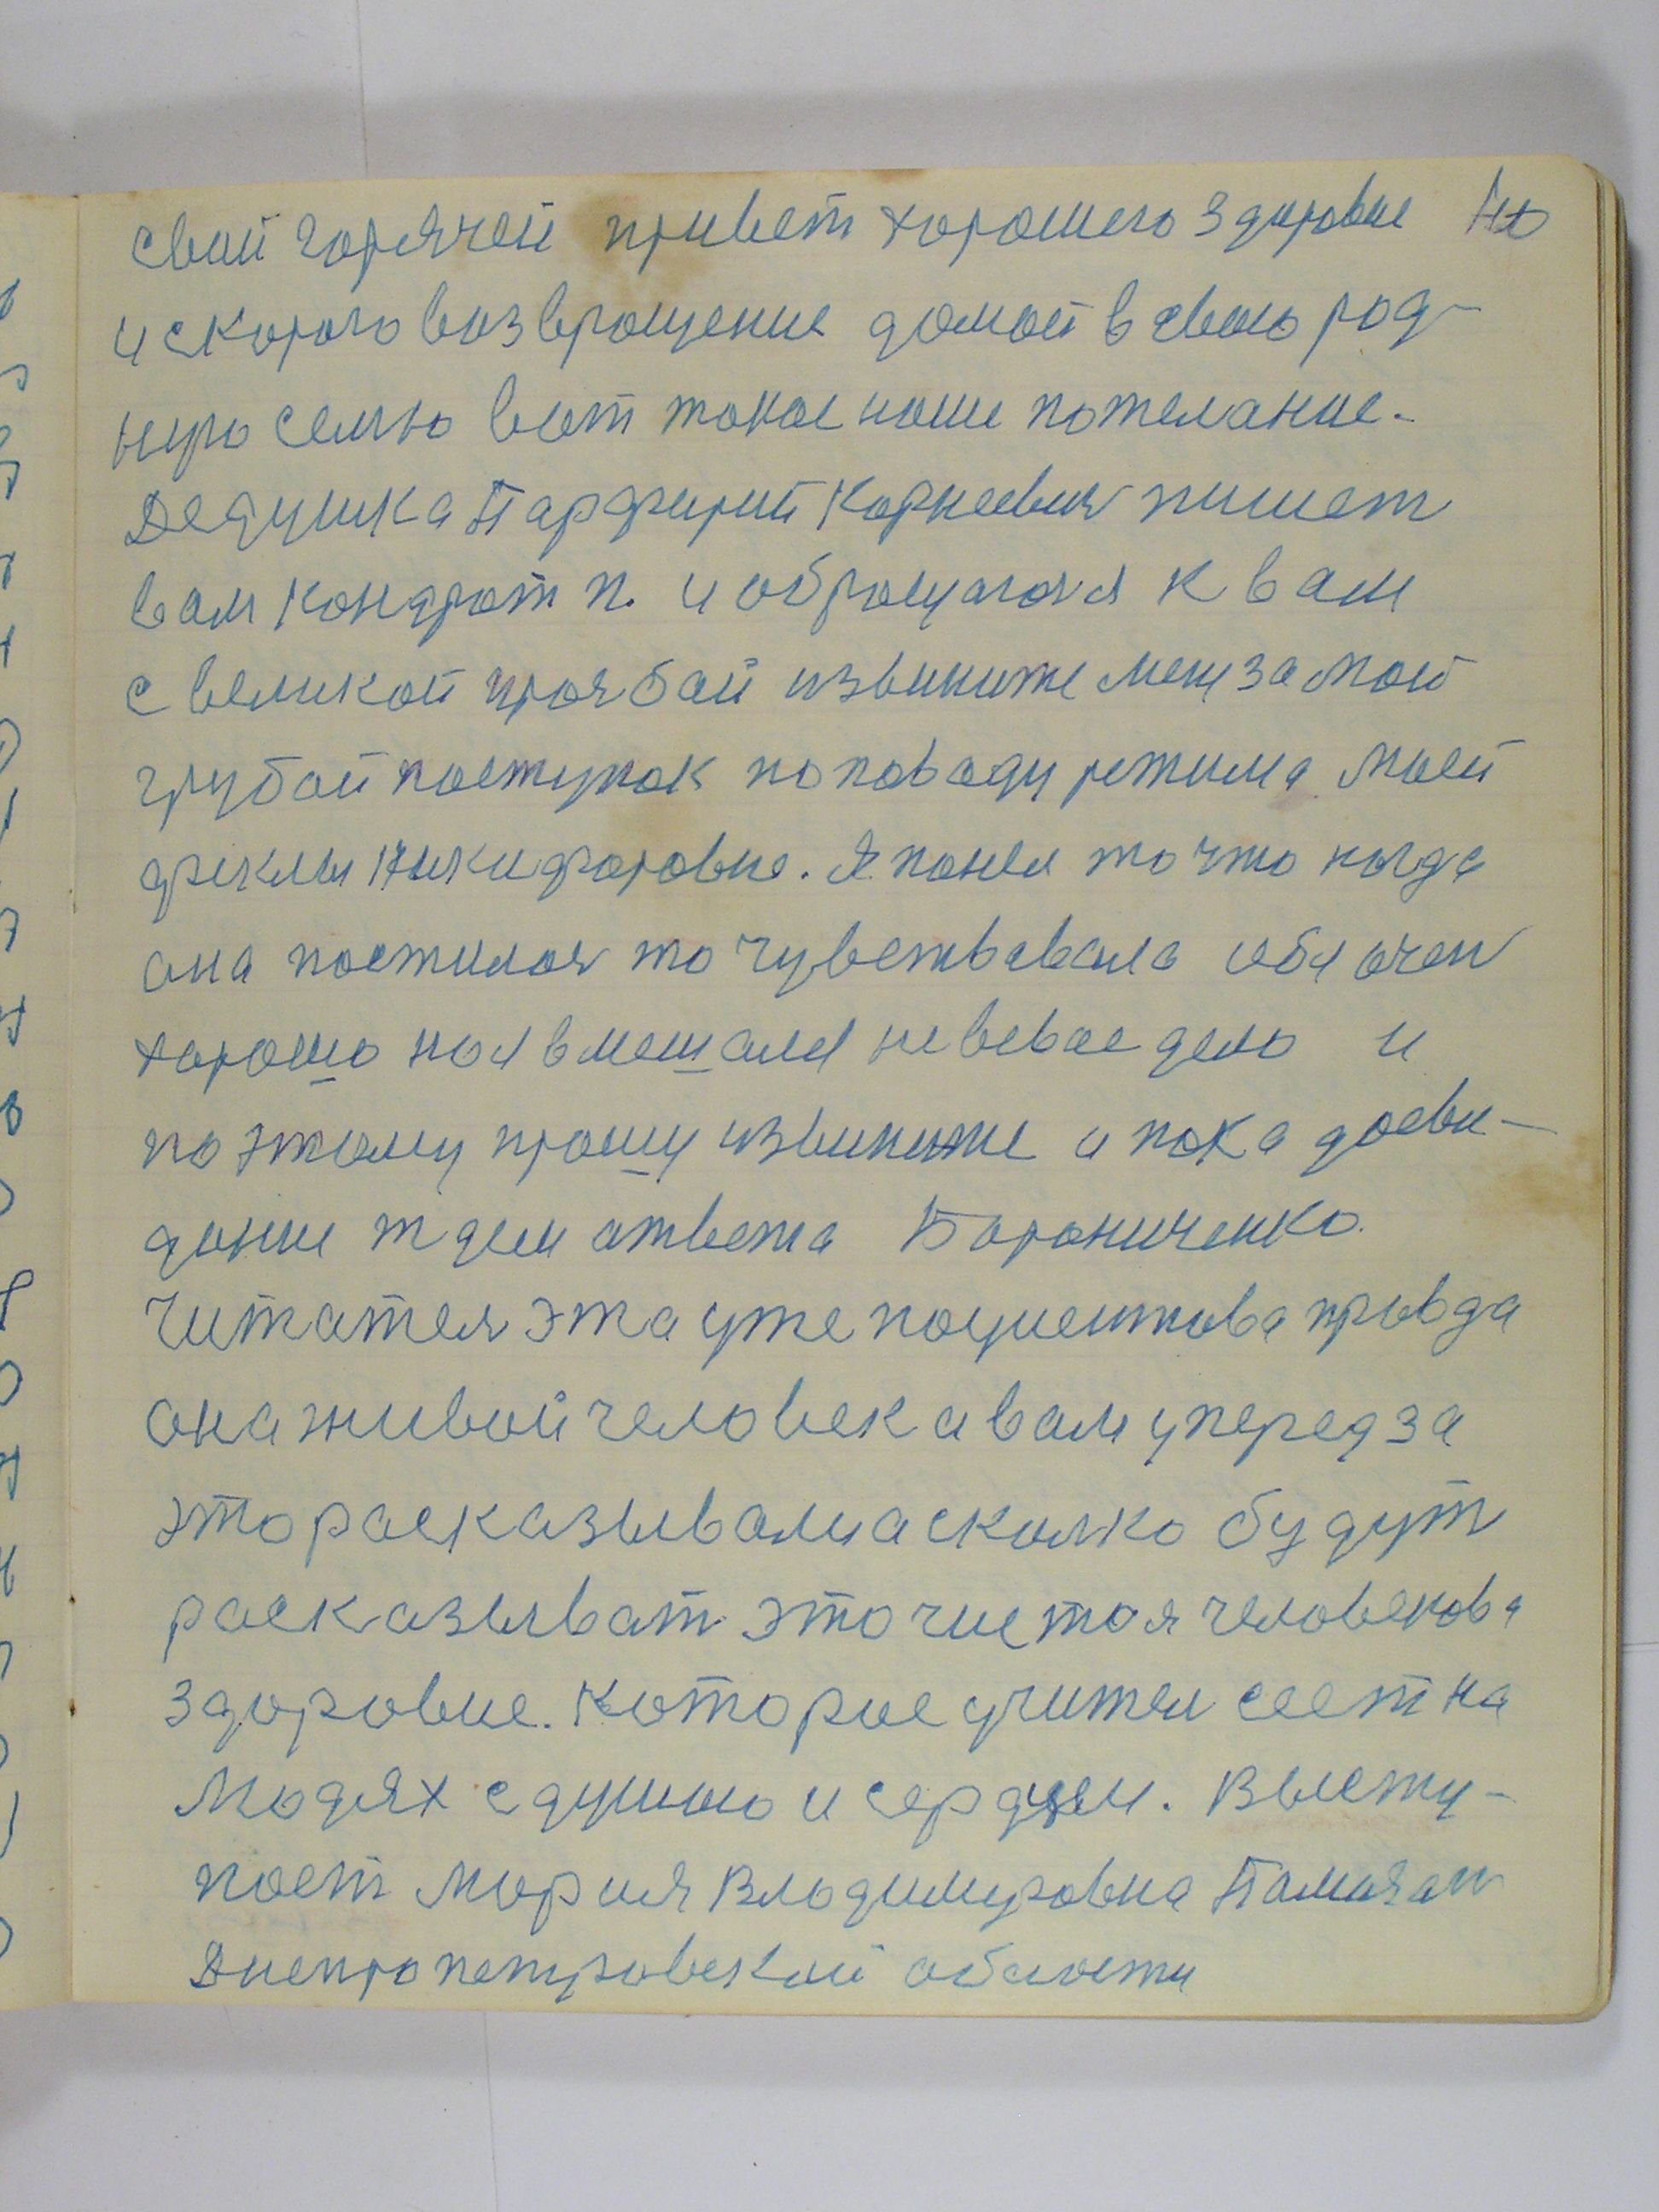 свой горячей привет хорошего здоровие
и скорого возврощение домой в свою род-
ную семю вот такое наше пожелание.
Дедушка Парфирий Корнеевич пишет
вам Кондрат п. и оброщаюся к вам
с великой прозбай извините мену за мой
грубай поступок по поводу режима моей
феклы Никифоровне. Я понел то что когда
она постилоя то чувствавала себя очен
хорошо но я вмешался не всвое дело и
по этому прошу извините и пока досви-
дание ждем ответа Борониченко.
Читател эта уже поциентова правда
она живой человек а вам уперед за
это расказывали а сколко будут
расказыват это чистоя человекова
здоровие. Которое учител сеет на
Людях с душою и сердцем. Высту-
поет Мория Влодимировна
Днепропетровской области